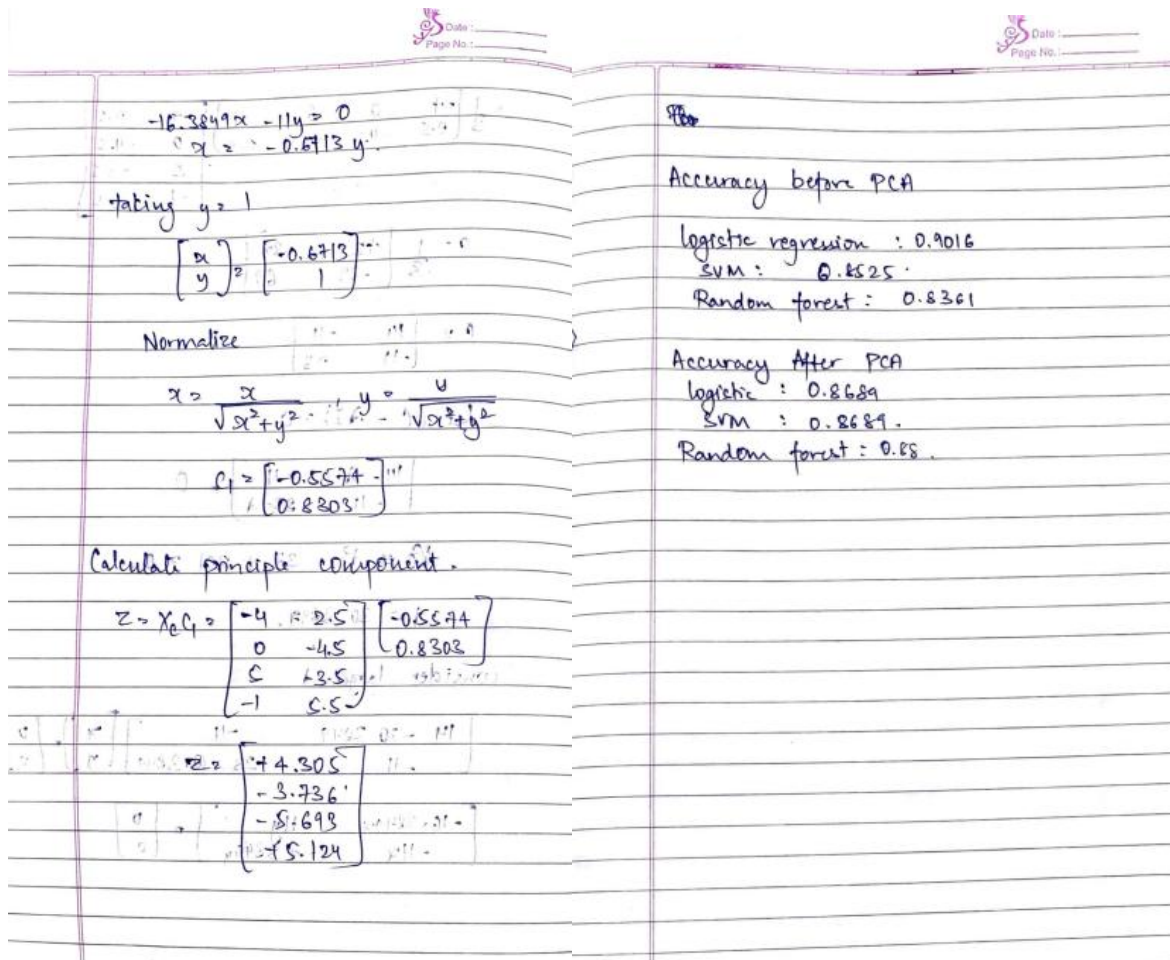 Date :
Page No. :
-16.3849x - 11y = 0
x = -0.6713 y.
taking y = 1
[x y] = [-0.6713 1]
Normalize
x = x / √x²+y² , y = y / √x²+y²
C₁ = [-0.5574 0.8303]
Calculate principle component.
Z = XcC₁ = [-4 2.5] [-0.5574]
[0 -4.5] [0.8303]
[5 -3.5]
[-1 5.5]
Z = [+4.305
-3.736
-5.693
+5.124]
Date :
Page No. :
Accuracy before PCA
logistic regression : 0.9016
SVM : 0.8525.
Random forest : 0.8361
Accuracy After PCA
logistic : 0.8689
SVM : 0.8689.
Random forest : 0.88.